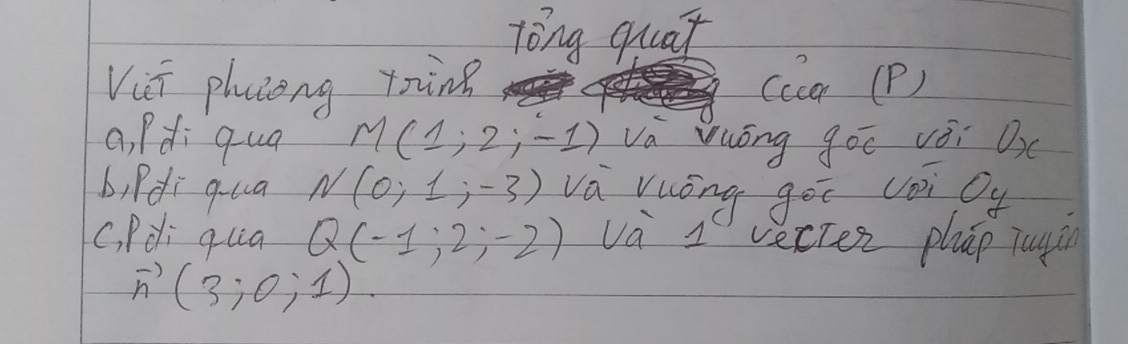 tổng quát
Viết phương trình của (P)
a, P đi qua M(1; 2; -1) và vuông góc với Ox
b, P đi qua N(0; 1; -3) và vuông góc với Oy
c, P đi qua Q(-1; 2; -2) và 1 vecter pháp tuyến
n⃗ (3; 0; 1).